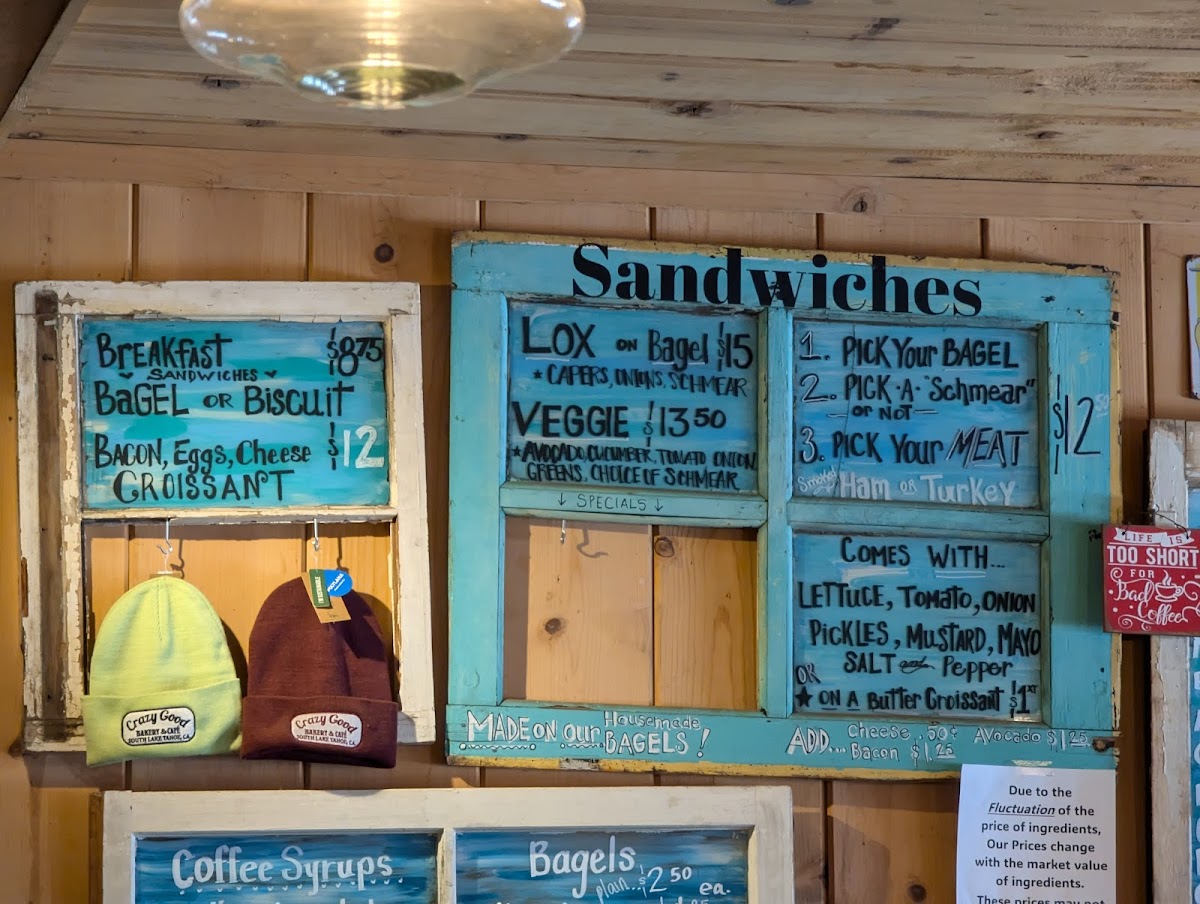 BREAKFAST $8.75
SANDWICHES
BAGEL OR BISCUIT
BACON, Eggs, Cheese $12
CROISSANT
Crazy Good
BAKERY & CAFÉ
SOUTH LAKE TAHOE, CA
Crazy Good
BAKERY & CAFÉ
SOUTH LAKE TAHOE, CA
Sandwiches
LOX ON Bagel $15
★ CAPERS, ONIONS, SCHMEAR
VEGGIE $13.50
★ AVOCADO, CUCUMBER, TOMATO ONION
GREENS, CHOICE OF SCHMEAR
↓ SPECIALS ↓
1. PICK Your BAGEL
2. PICK • A • "Schmear"
— OR NOT —
3. PICK Your MEAT
Smoked Ham OR Turkey
$12.50
COMES WITH...
LETTUCE, TOMATO, ONION
PICKLES, MUSTARD, MAYO
SALT and Pepper
OR
★ ON A Butter Croissant $1
MADE ON OUR Housemade BAGELS!
ADD... Cheese .50¢ Avocado $1.25
Bacon $1.25
LIFE IS
TOO SHORT
FOR
Bad
Coffee
Due to the
Fluctuation of the
price of ingredients,
Our Prices change
with the market value
of ingredients.
These prices may not
Coffee Syrups
Bagels
plain... $2.50 ea.